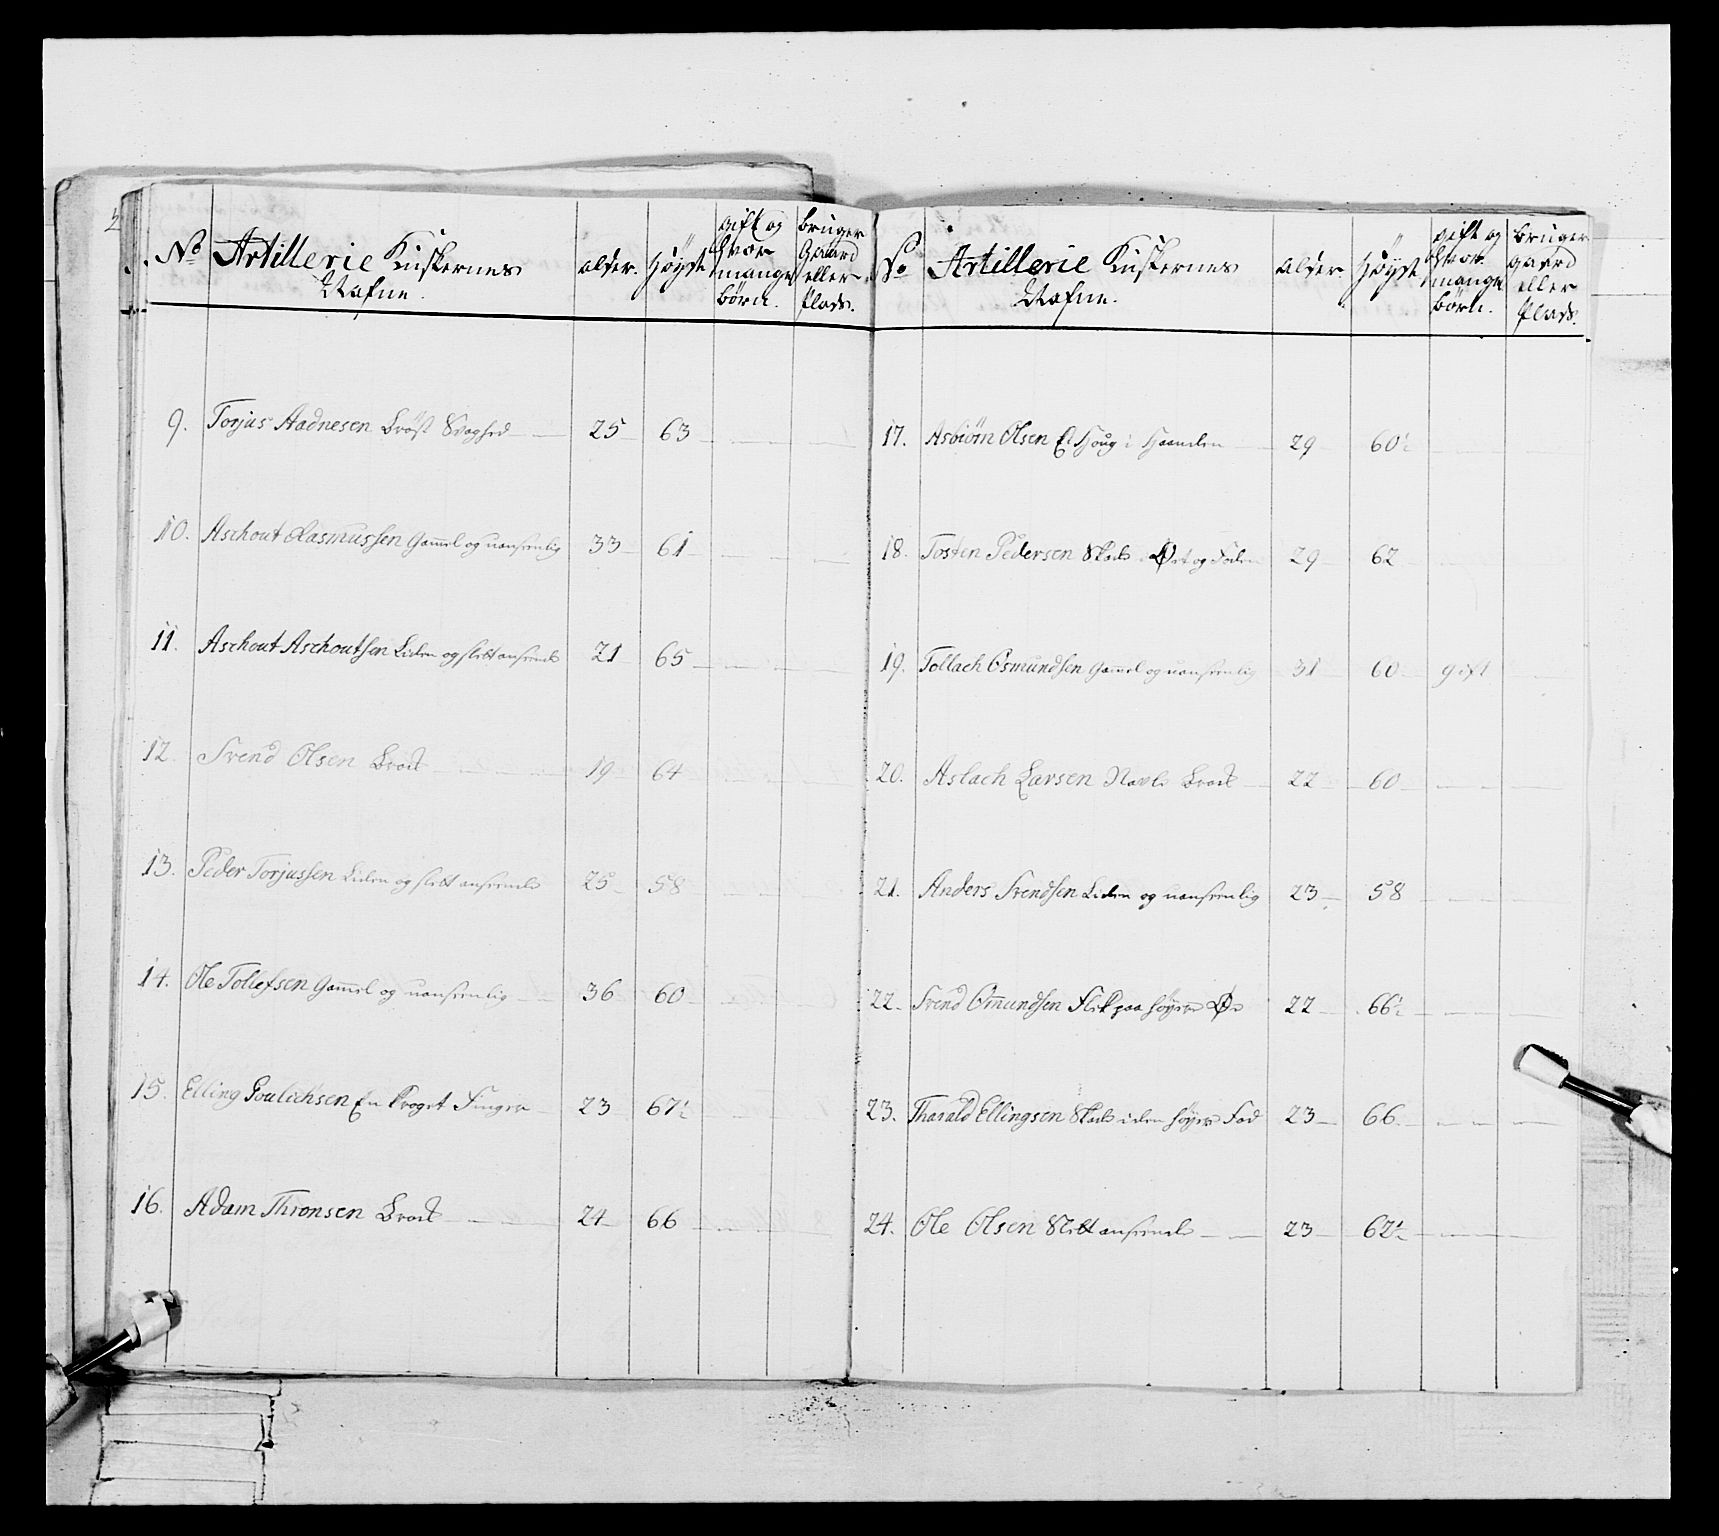 No Artillerie Kuskernes Nafne. alder. Høyde gift og hvor mange børn. bruger Gaard eller Plads.
9. Torjus Aadnesen Bröst Svaghed 25 63
10. Aschout Rasmussen Gammel og uanseenlig 33 61
11. Aschout Aschoutsen Liden og slett anseende 21 65
12. Svend Olsen Brok 19 64
13. Peder Torjussen Liden og slett anseende 25 58
14. Ole Tollefsen Gammel og uanseenlig 36 60
15. Elling Poulichsen En kroget Finger 23 67½
16. Adam Thronsen Brok 24 66
No Artillerie Kuskernes Nafne. alder. Høyde gift og hvor mange børn. bruger gaard eller Plads.
17. Asbiörn Olsen Et Houg i Haanden 29 60½
18. Tosten Pedersen Skade Øret og Foden 29 62
19. Tollach Osmundsen Gammel og uanseenlig 31 60 gift
20. Aslach Larsen Navle Brok 22 60
21. Anders Svendsen Liden og uanseenlig 23 58
22. Svend Omundsen Flek paa høyere Øe 22 66½
23. Tharald Ellingsen Skade i den høyre Fod 23 66
24. Ole Olsen Slett anseende 23 62½